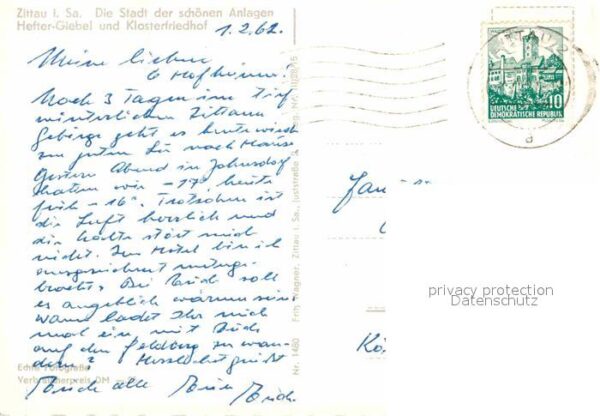 Zittau i. Sa. Die Stadt der schönen Anlagen
Hefter-Giebel und Klosterfriedhof
1.2.62.
Meine lieben
6 Hofheimer!
Nach 3 Tagen im tief
winterlichen Zittauer
Gebirge geht es heute wieder
zu guten Tür nach Hause
Gestern Abend in Johnsdorf
hatten wir -17° heute
früh -16°. Trotzdem ist
die Luft herrlich und
die Kälte stört mich
nicht. Im Hotel bin ich
ausgezeichnet unterge-
bracht. Bei Euch soll
es angeblich warm sein
wann ladet Ihr mich
mal ein, mit Euch
auf den Feldberg zu wan-
dern? Herzlichst grüßt
Euch alle Euer
Echte Fotografie
Verbraucherpreis DM
Fritz Wagner, Zittau i. Sa.
Nr. 1460
DEUTSCHE
DEMOKRATISCHE REPUBLIK
10
a
Fam
Kö
privacy protection
Datenschutz